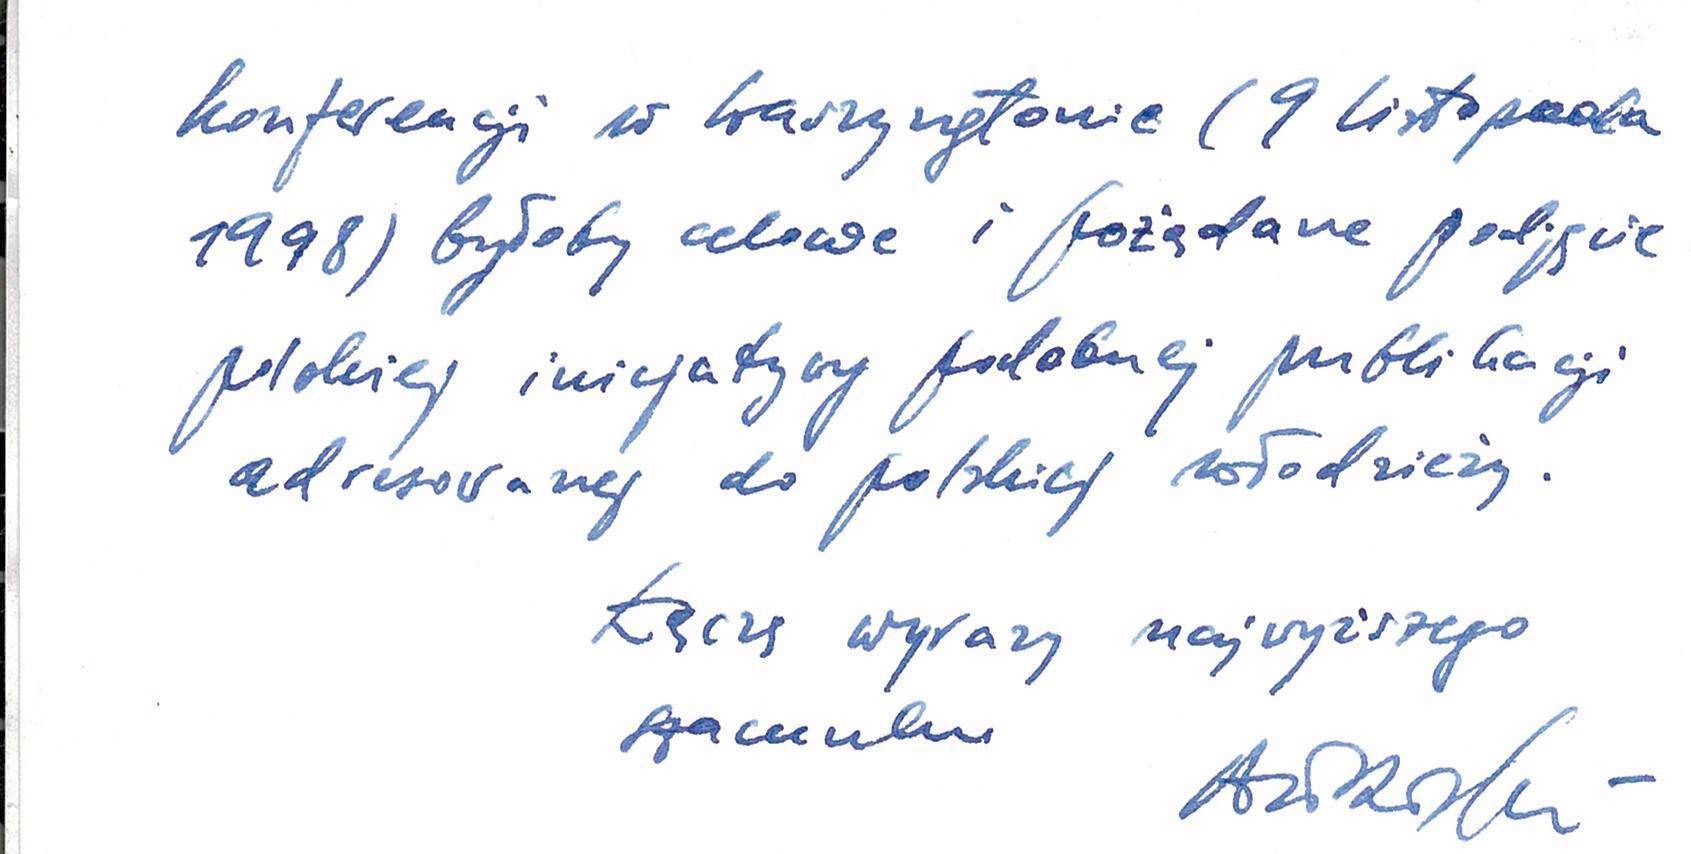 konferencji w Waszyngtonie (9 listopada
1998) byłoby celowe i pożądane podjęcie
polskiej inicjatywy podobnej publikacji
adresowanej do polskiej młodzieży.
Łączę wyrazy najwyższego
szacunku